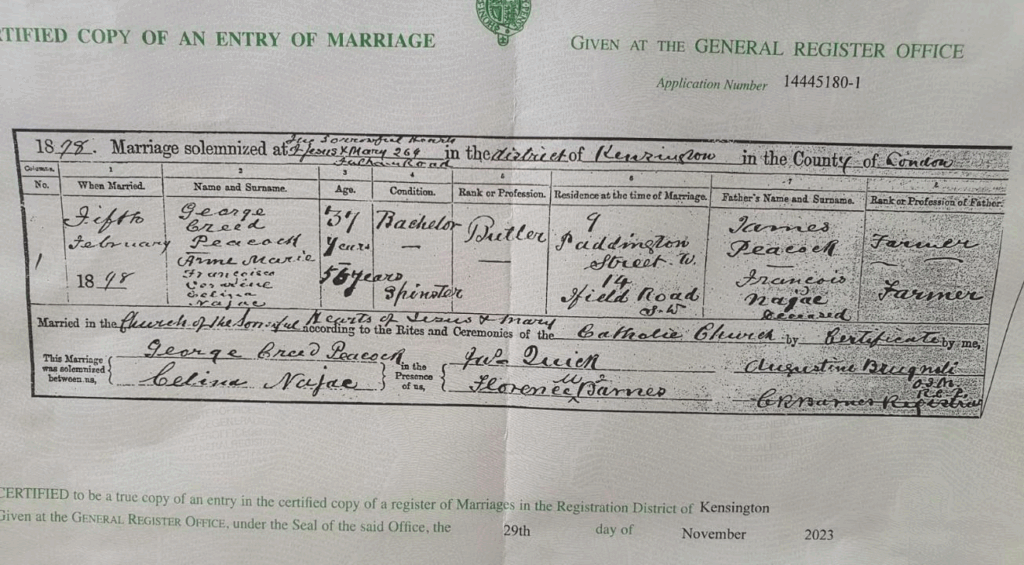 RTIFIED COPY OF AN ENTRY OF MARRIAGE
GIVEN AT THE GENERAL REGISTER OFFICE
Application Number 14445180-1
The Sorrowful Hearts
1898. Marriage solemnized at of Jesus & Mary 264 in the district of Kensington in the County of London
Fulham Road
Columns. 1 2 3 4 5 6 7 8
No. When Married. Name and Surname. Age. Condition. Rank or Profession. Residence at the time of Marriage. Father's Name and Surname. Rank or Profession of Father.
1 Fifth February 1898
George Creed Peacock 37 years Bachelor Butler 9 Paddington Street W. James Peacock Farmer
Anne Marie Celina Najac 56 years Spinster — 14 Ifield Road S.W Francois Najac deceased Farmer
Married in the Church of the Sorrowful Hearts of Jesus & Mary according to the Rites and Ceremonies of the Catholic Church by Certificate by me,
This Marriage was solemnized between us, George Creed Peacock Celina Najac
in the Presence of us, Jas Quick Florence M Barnes
Augustine
Registrar
CERTIFIED to be a true copy of an entry in the certified copy of a register of Marriages in the Registration District of Kensington
Given at the GENERAL REGISTER OFFICE, under the Seal of the said Office, the 29th day of November 2023